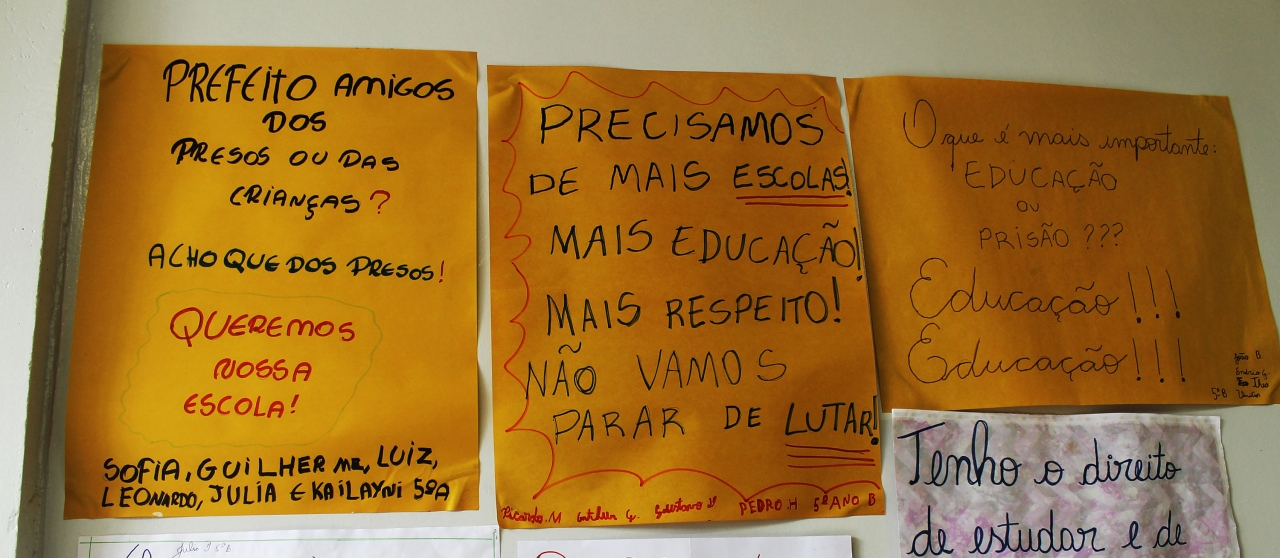 PREFEITO AMIGOS
DOS
PRESOS OU DAS
CRIANÇAS?
ACHO QUE DOS PRESOS!
QUEREMOS
NOSSA
ESCOLA!
SOFIA, GUILHERME, LUIZ,
LEONARDO, JULIA E KAILAYNI 5ºA
PRECISAMOS
DE MAIS ESCOLAS!
MAIS EDUCAÇÃO!
MAIS RESPEITO!
NÃO VAMOS
PARAR DE LUTAR!
Ricardo.M G. Gustavo PEDRO.H 5º ANO B
O que é mais importante:
EDUCAÇÃO
OU
PRISÃO ???
Educação!!!
Educação!!!
João B.
5ºB
Tenho o direito
de estudar e de